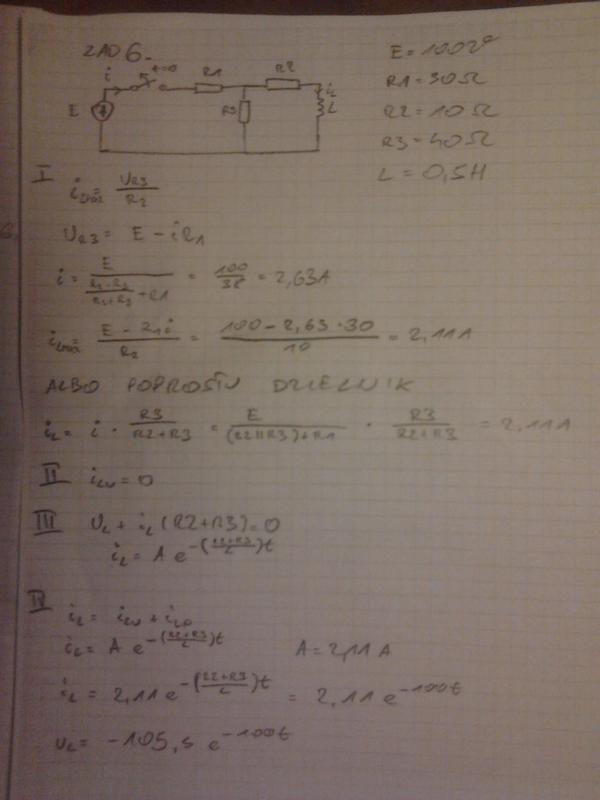 ZAD 6.
t=0
i
R1
R2
E
R3
iL
L
E = 100V
R1 = 30Ω
R2 = 10Ω
R3 = 40Ω
L = 0,5H
I
= UR3 / R2
UR3 = E - iR1
= 100 / 38 = 2,63A
= (E - R1i) / R2 = (100 - 2,63 · 30) / 10 = 2,11A
ALBO POPROSTU DZIELNIK
iL = i · R3 / (R2+R3) = E / ((R2||R3)+R1) · R3 / (R2+R3) = 2,11A
II iLU = 0
III UL + iL(R2+R3)=0
iL = A e^-((R2+R3)/L)t
IV
iL = iLU + iLP
iL = A e^-((R2+R3)/L)t A = 2,11 A
iL = 2,11 e^-((R2+R3)/L)t = 2,11 e^-100t
UL = -105,5 e^-100t